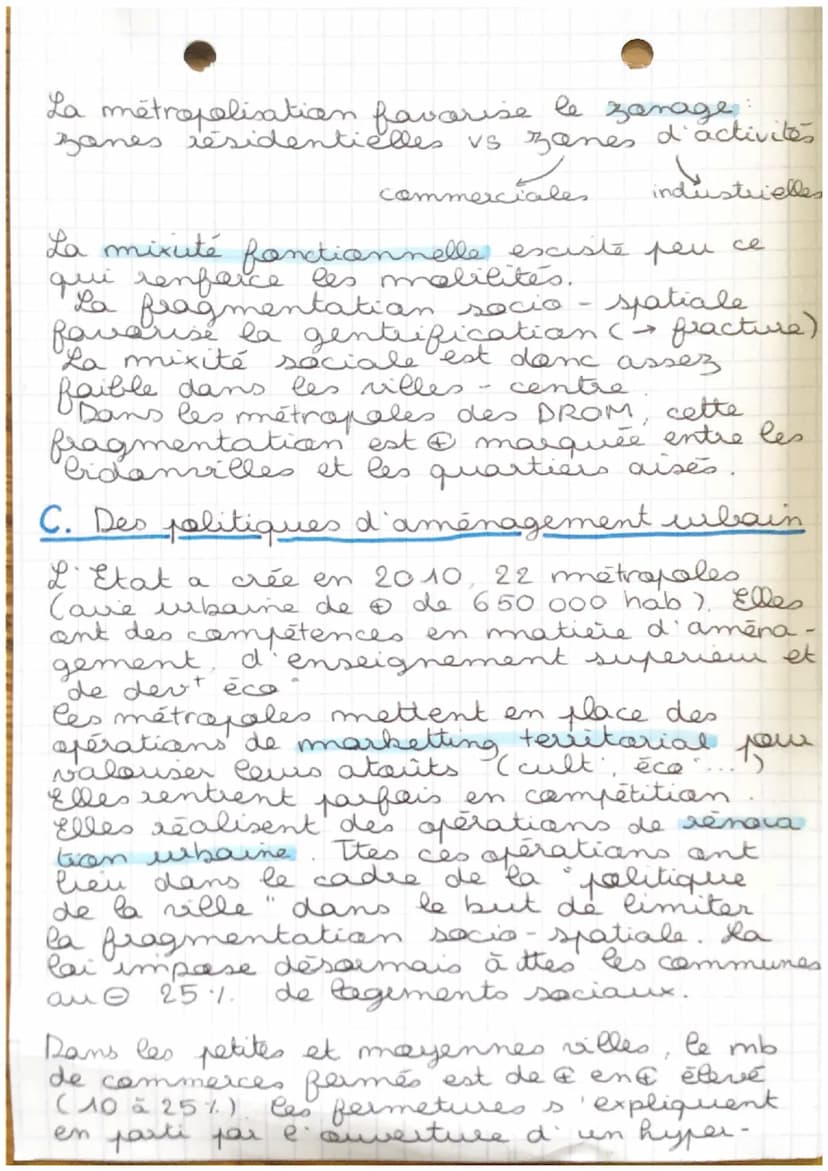 La métropolisation favorise le zonage :
zones résidentielles vs zones d'activités
commerciales industrielles
La mixité fonctionnelle existe peu ce
qui renforce les mobilités.
La fragmentation socio-spatiale
favorise la gentrification (→ fracture)
La mixité sociale est donc assez
faible dans les villes-centre.
Dans les métropoles des DROM, cette
fragmentation est ⊕ marquée entre les
bidonvilles et les quartiers aisés.
C. Des politiques d'aménagement urbain
L'Etat a crée en 2010, 22 métropoles
(aire urbaine de ⊕ de 650 000 hab). Elles
ont des compétences en matière d'aména-
gement, d'enseignement superieur et
de dev+ éco
Les métropoles mettent en place des
opérations de marketting territorial pour
valoriser leurs atouts (cult, éco ...)
Elles rentrent parfois en compétition.
Elles réalisent des opérations de rénova
tion urbaine. Ttes ces opérations ont
lieu dans le cadre de la "politique
de la ville" dans le but de limiter
la fragmentation socio-spatiale. La
loi impose désormais à ttes les communes
au ⊖ 25 % de logements sociaux.
Dans les petites et moyennes villes, le nb
de commerces fermés est de ⊕ en ⊕ élevé
(10 à 25%). Ces fermetures s'expliquent
en parti par l'ouverture d'un hyper-